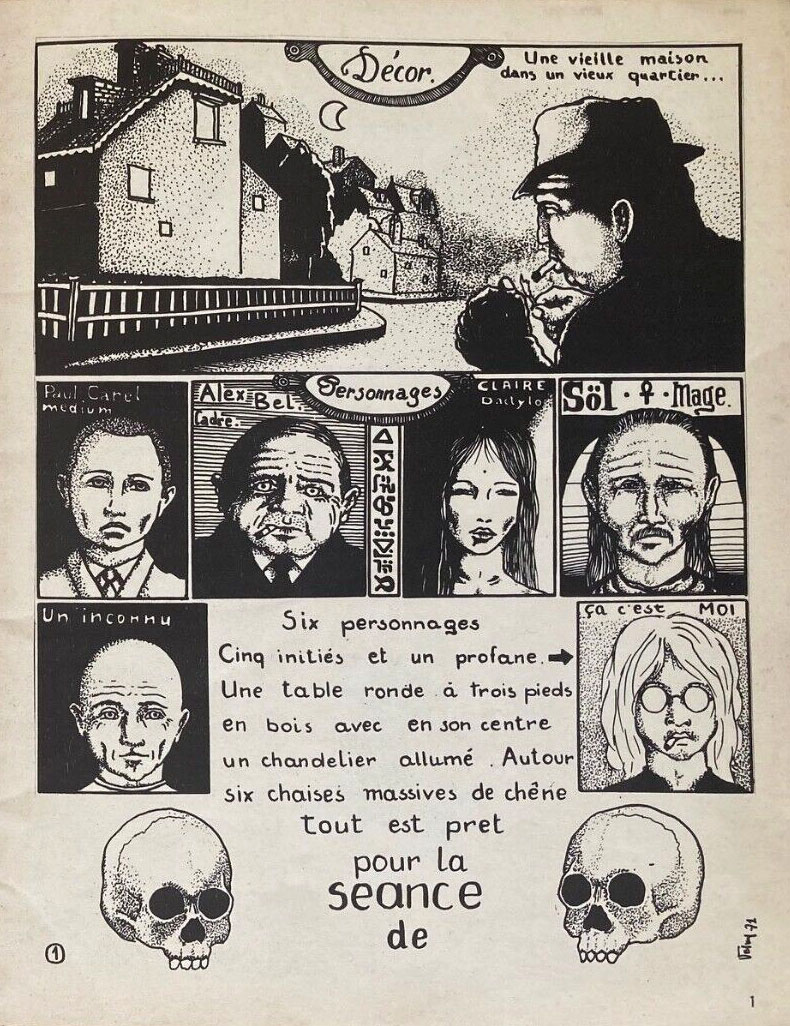 Décor.
Une vieille maison
dans un vieux quartier...
Paul Carel
medium
Alex Bel.
Cadre.
Personnages
CLAIRE
Dactylo
Söl · ☥ · Mage.
Un inconnu
Six personnages
Cinq initiés et un profane.
ça c'est MOI
Une table ronde à trois pieds
en bois avec en son centre
un chandelier allumé. Autour
six chaises massives de chêne
tout est pret
pour la
seance
de
1
71
1